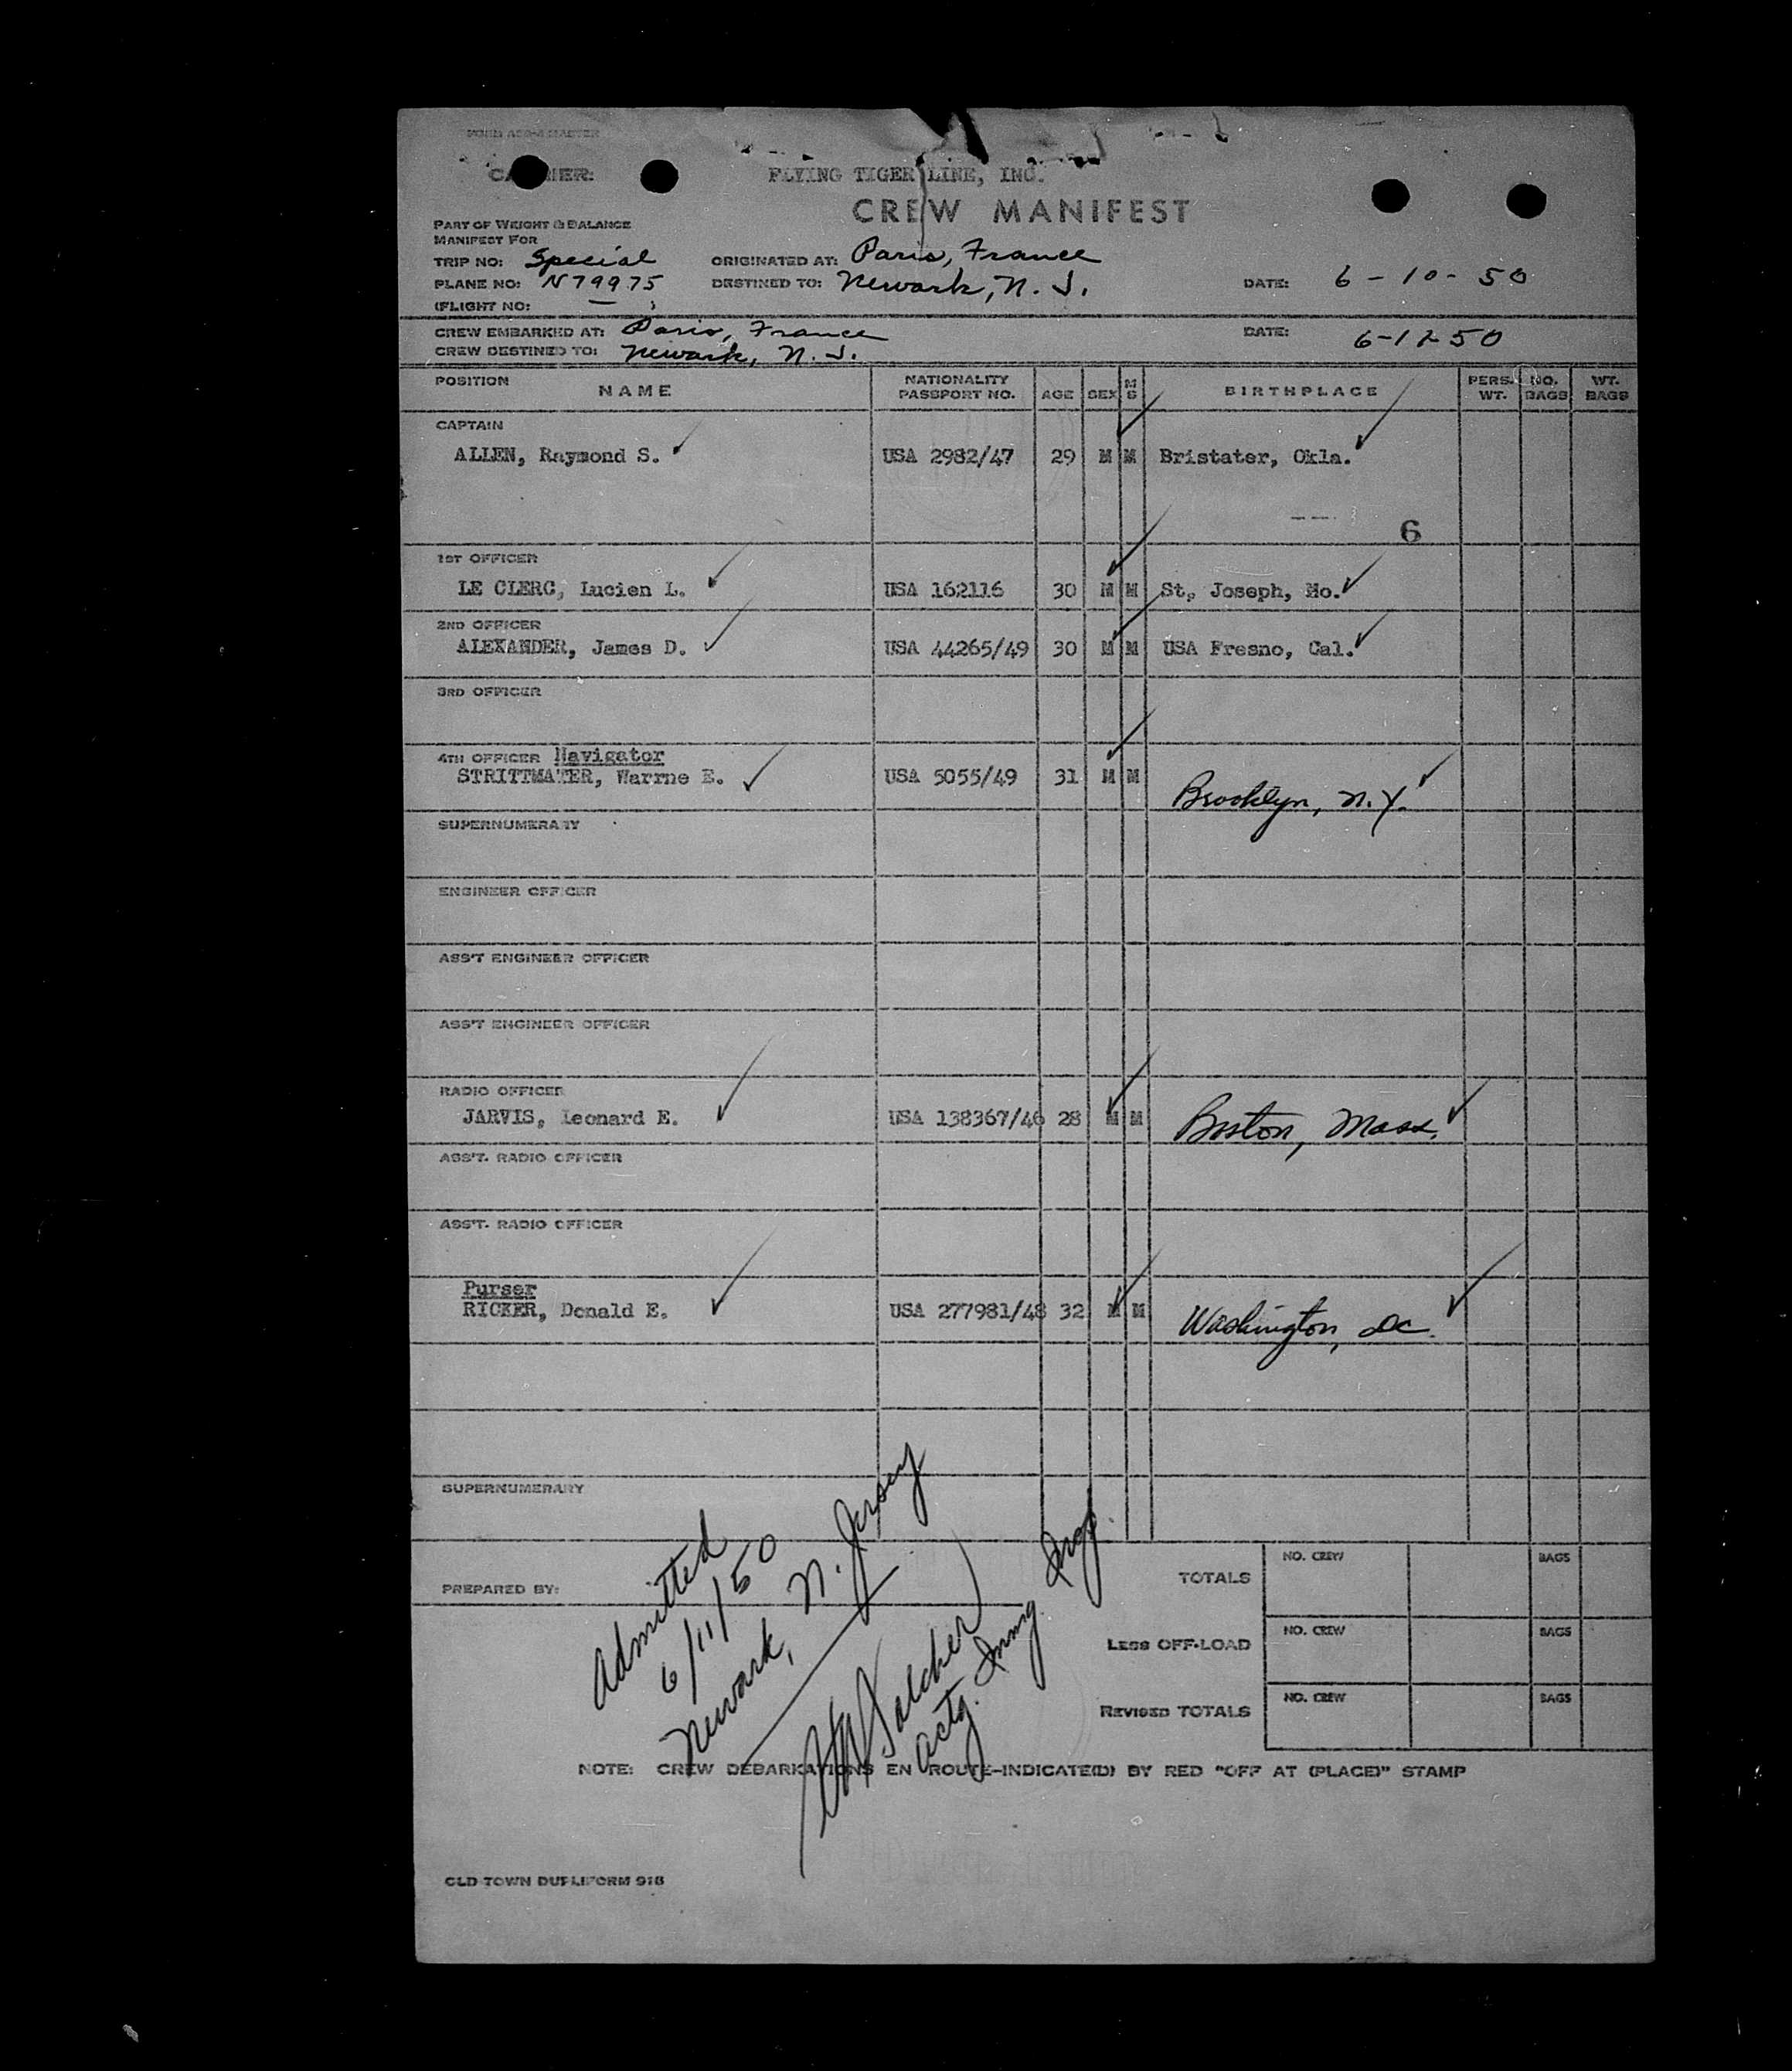 FLYING TIGER LINE, INC.
CREW MANIFEST
PART OF WEIGHT & BALANCE
MANIFEST FOR
TRIP NO: Special ORIGINATED AT: Paris, France
PLANE NO: N79975 DESTINED TO: Newark, N. J. DATE: 6-10-50
(FLIGHT NO: —
CREW EMBARKED AT: Paris, France DATE:
CREW DESTINED TO: Newark, N. J.
POSITION NAME NATIONALITY PASSPORT NO. AGE SEX M S BIRTHPLACE PERS. WT. NO. BAGS WT. BAGS
CAPTAIN
ALLEN, Raymond S. USA 2982/47 29 M M Bristater, Okla.
6
1ST OFFICER
LE CLERC, Lucien L. USA 162116 30 M M St, Joseph, Mo.
2ND OFFICER
ALEXANDER, James D. USA 44265/49 30 M M USA Fresno, Cal.
3RD OFFICER
4TH OFFICER Navigator
STRITTMATER, Warrne E. USA 5055/49 31 M M Brooklyn, N.Y.
SUPERNUMERARY
ENGINEER OFFICER
ASS'T ENGINEER OFFICER
ASS'T ENGINEER OFFICER
RADIO OFFICER
JARVIS, Leonard E. USA 138367/46 28 M M Boston, Mass.
ASS'T. RADIO OFFICER
ASS'T. RADIO OFFICER
Purser
RICKER, Donald E. USA 277981/48 32 M M Washington, DC.
SUPERNUMERARY
PREPARED BY:
Admitted
6/11/50
Newark, N. Jersey
actg. Immg. Insp.
TOTALS NO. CREW BAGS
LESS OFF-LOAD NO. CREW BAGS
REVISED TOTALS NO. CREW BAGS
NOTE: CREW DEBARKATIONS EN ROUTE—INDICATE(D) BY RED "OFF AT (PLACE)" STAMP
OLD TOWN DUPLIFORM 918